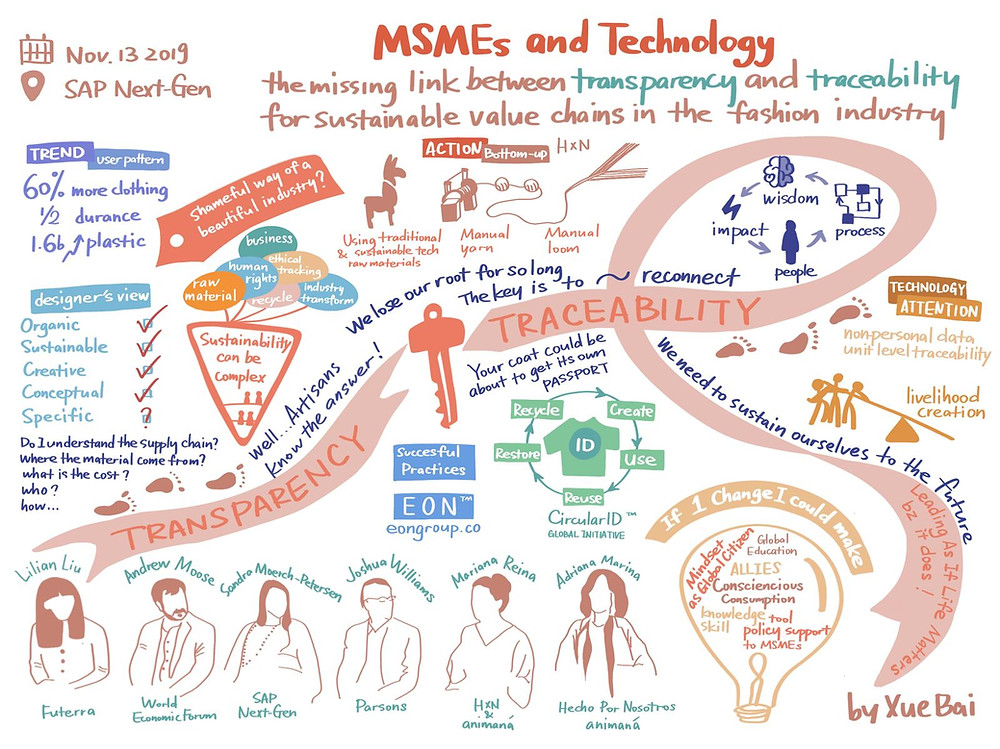 Nov. 13 2019
SAP Next-Gen
MSMEs and Technology
the missing link between transparency and traceability
for sustainable value chains in the fashion industry
TREND
user pattern
60% more clothing
1/2 durance
1.6b plastic
Shameful way of a
beautiful industry?
business
ethical
tracking
human
rights
raw
material
recycle
Industry
transform
Sustainability
can be
complex
ACTION
Bottom-up
HxN
Using traditional
& sustainable tech
raw materials
Manual
yarn
Manual
loom
wisdom
process
people
impact
designer's view
Organic
Sustainable
Creative
Conceptual
Specific
?
Do I understand the supply chain?
Where the material come from?
what is the cost?
who?
how...
We lose our root for so long
The key is to ~ reconnect
TRACEABILITY
Well... Artisans
know the answer!
TRANSPARENCY
Your coat could be
about to get its own
PASSPORT
TECHNOLOGY
ATTENTION
nonpersonal data
unit level traceability
livelihood
creation
We need to sustain ourselves to the future
Leading As If Life Matters
bz it does!
Succesful
Practices
EON™
eongroup.co
Recycle
Create
Restore
ID
Use
Reuse
CircularID™
GLOBAL INITIATIVE
If 1 Change I could make
Mindset
as Global Citizen
Global
Education
ALLIES
Consciencious
Consumption
knowledge
skill
tool
policy support
to MSMEs
Lilian Liu
Andrew Moose
Sandra Moerch-Petersen
Joshua Williams
Mariana Reina
Adriana Marina
Futerra
World
Economic Forum
SAP
Next-Gen
Parsons
HxN
&
animaná
Hecho Por Nosotros
animaná
by Xue Bai